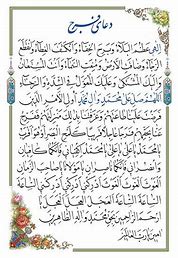 دعای فرج
اِلهی عَظُمَ الْبَلاءُ وَبَرِحَ الْخَفاءُ وَانْکَشَفَ الْغِطاءُ وَانْقَطَعَ
الرَّجاءُ وَضاقَتِ الْاَرْضُ وَمُنِعَتِ السَّماءُ وَاَنْتَ الْمُسْتَعانُ
وَاِلَیْکَ الْمُشْتَکی وَعَلَیْکَ الْمُعَوَّلُ فِی الشِّدَّةِ وَالرَّخاءِ
اَللّهُمَّ صَلِّ عَلی مُحَمَّدٍ وَآلِ مُحَمَّدٍ اُولِی الْاَمْرِ الَّذینَ
فَرَضْتَ عَلَیْنا طاعَتَهُمْ وَعَرَّفْتَنا بِذلِکَ مَنْزِلَتَهُمْ فَفَرِّجْ
عَنّا بِحَقِّهِمْ فَرَجاً عاجِلاً قَریباً کَلَمْحِ الْبَصَرِ اَوْ هُوَ اَقْرَبُ
یا مُحَمَّدُ یا عَلِیُّ یا عَلِیُّ یا مُحَمَّدُ اِکْفِیانی فَاِنَّکُما کافِیانِ
وَانْصُرانی فَاِنَّکُما ناصِرانِ یا مَوْلانا یا صاحِبَ الزَّمانِ
الْغَوْثَ الْغَوْثَ الْغَوْثَ اَدْرِکْنی اَدْرِکْنی اَدْرِکْنی السّاعَةَ
السّاعَةَ السّاعَةَ الْعَجَلَ الْعَجَلَ الْعَجَلَ یا
اَرْحَمَ الرّاحِمینَ بِحَقِّ مُحَمَّدٍ وَآلِهِ الطّاهِرینَ